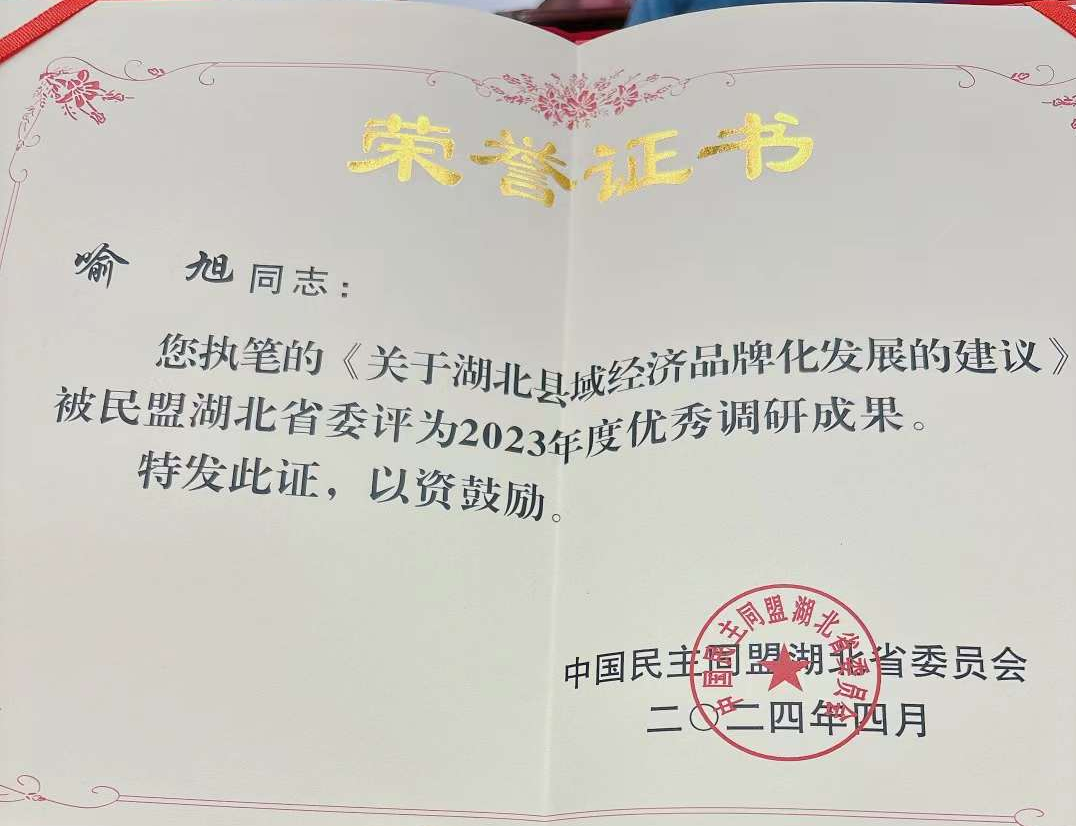 荣誉证书
喻 旭同志：
您执笔的《关于湖北县域经济品牌化发展的建议》
被民盟湖北省委评为2023年度优秀调研成果。
特发此证，以资鼓励。
中国民主同盟湖北省委员会
二〇二四年四月
中国民主同盟湖北省委员会